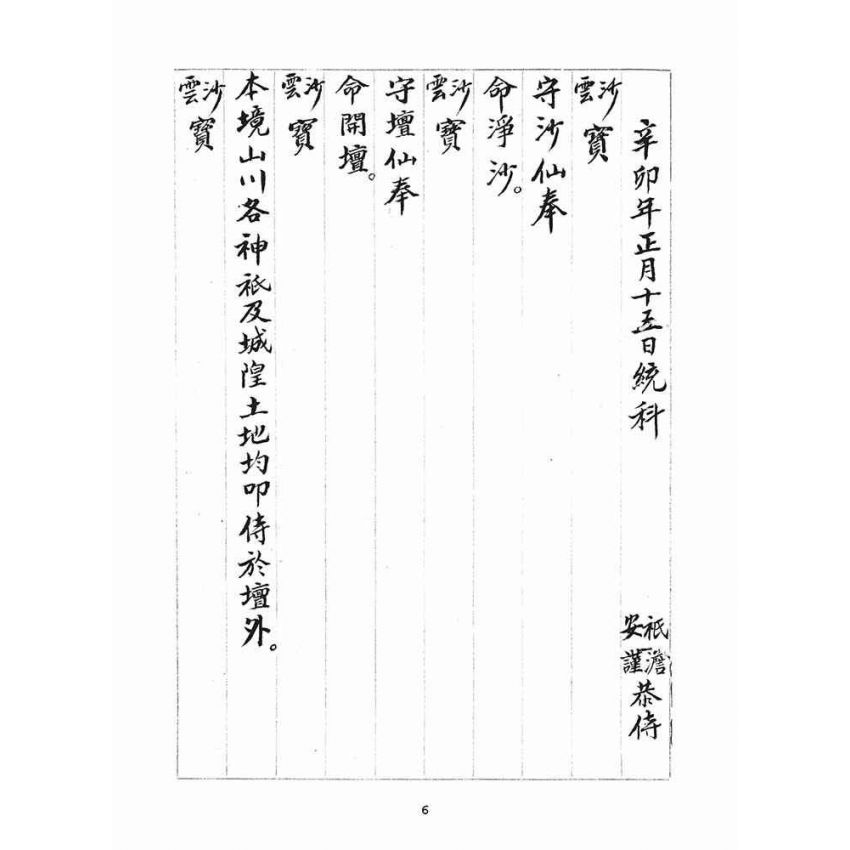 辛卯年正月十五日統科 祇澹安謹恭侍
沙雲寶
守沙仙奉
命淨沙。
沙雲寶
守壇仙奉
命開壇。
沙雲寶
本境山川各神祇及城隍土地均叩侍於壇外。
沙雲寶
6